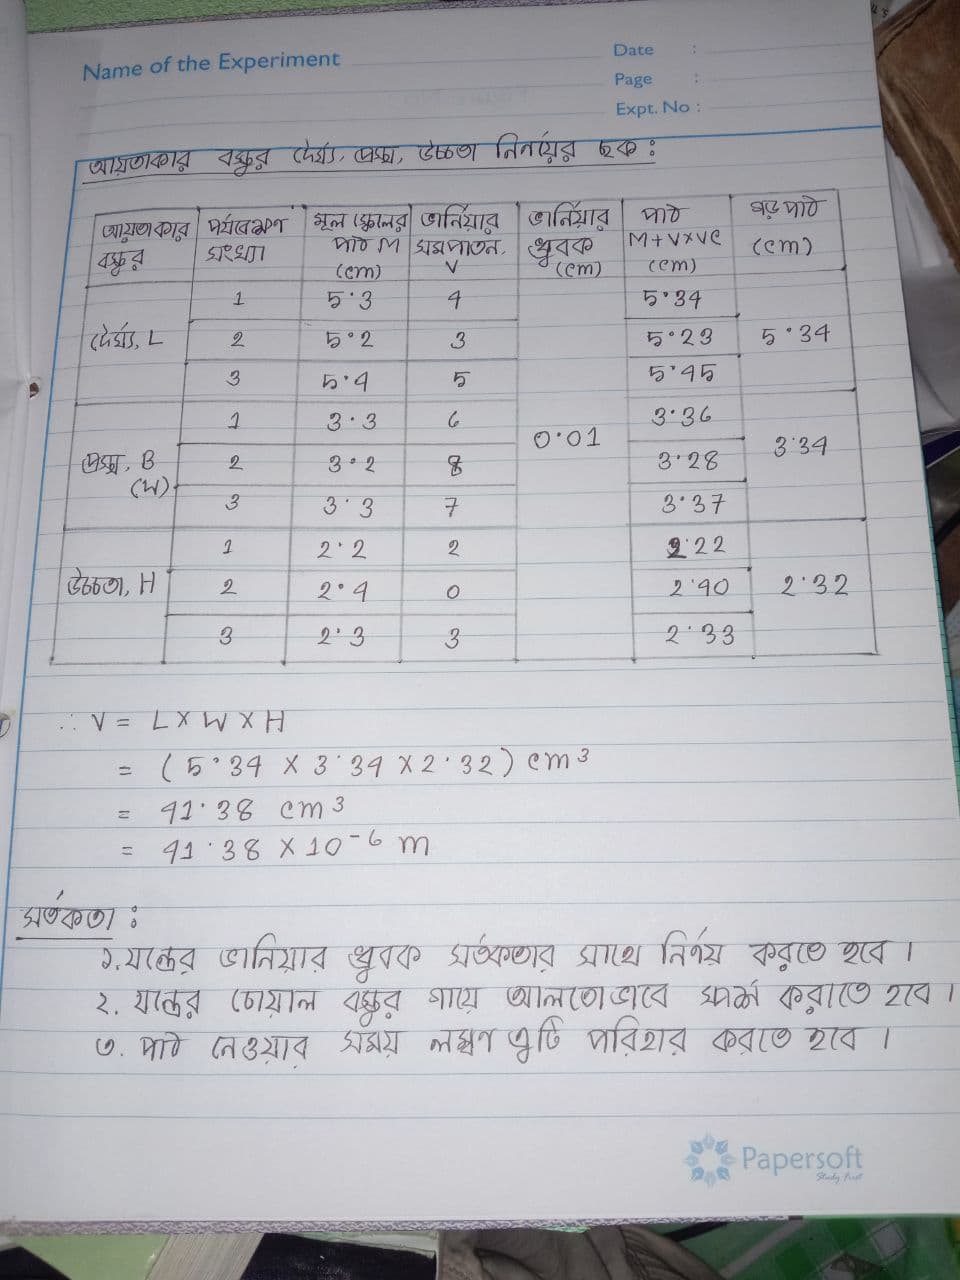 Name of the Experiment
Date :
Page :
Expt. No :
আয়তাকার বস্তুর দৈর্ঘ্য, প্রস্থ, উচ্চতা নির্ণয়ের ছক :
আয়তাকার বস্তুর | পর্যবেক্ষণ সংখ্যা | মূল স্কেলের পাঠ M (cm) | ভার্নিয়ার সমপাতন. V | ভার্নিয়ার ধ্রুবক (cm) | পাঠ M+V×VC (cm) | গড় পাঠ (cm)
দৈর্ঘ্য, L | 1 | 5.3 | 4 | 0.01 | 5.34 | 5.34
2 | 5.2 | 3 | 5.23
3 | 5.4 | 5 | 5.45
প্রস্থ, B (W) | 1 | 3.3 | 6 | 3.36 | 3.34
2 | 3.2 | 8 | 3.28
3 | 3.3 | 7 | 3.37
উচ্চতা, H | 1 | 2.2 | 2 | 2.22 | 2.32
2 | 2.4 | 0 | 2.40
3 | 2.3 | 3 | 2.33
∴ V = L × W × H
= (5.34 × 3.34 × 2.32) cm³
= 41.38 cm³
= 41.38 × 10⁻⁶ m
সর্তকতা :
১. যন্ত্রের ভানিয়ার ধ্রুবক সর্তকতার সাথে নির্ণয় করতে হবে।
২. যন্ত্রের চোয়াল বস্তুর গায়ে আলতোভাবে স্পর্শ করাতে হবে।
৩. পাঠ নেওয়ার সময় লম্বণ ত্রুটি পরিহার করতে হবে।
Papersoft
Study First